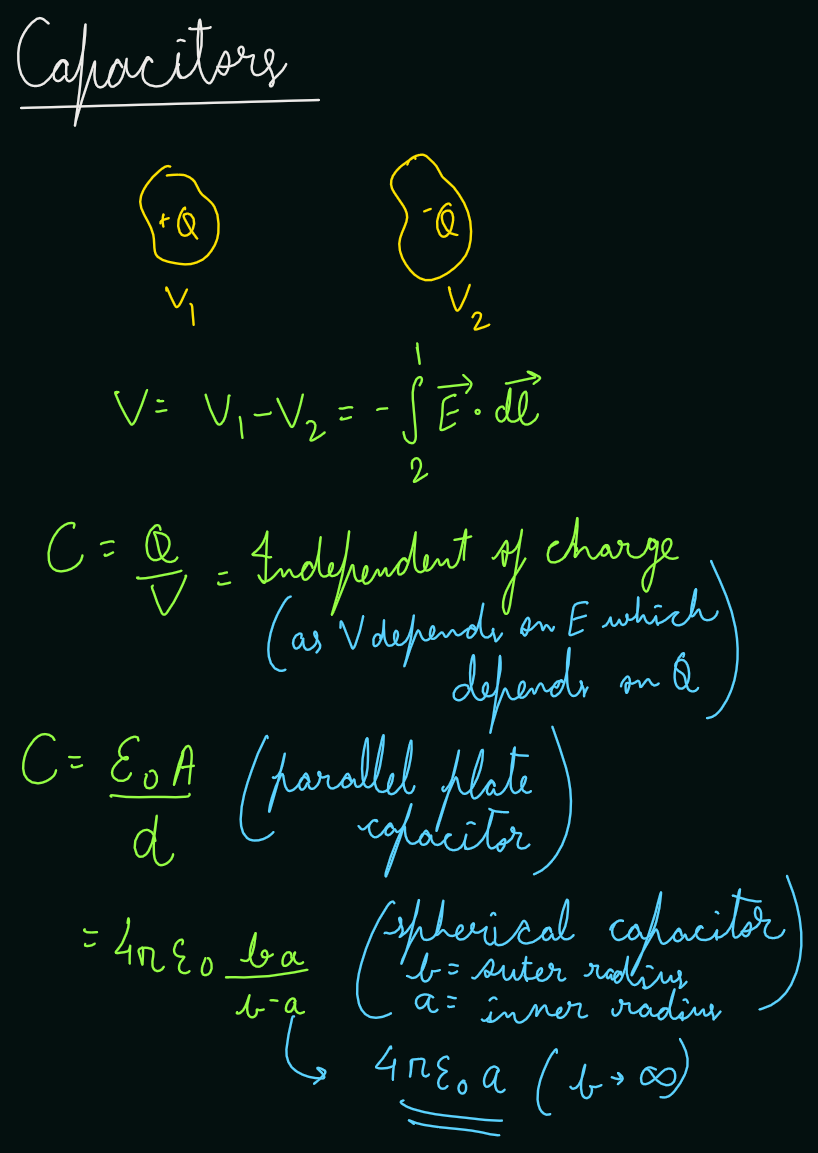 Capacitors
+Q -Q
V₁ V₂
V = V₁ - V₂ = - ∫₂¹ E⃗ · dl⃗
C = Q/V = Independent of charge
(as V depends on E which
depends on Q)
C = ε₀A/d (parallel plate
capacitor)
= 4πε₀ ba/b-a (spherical capacitor
b = outer radius
a = inner radius)
→ 4πε₀a (b → ∞)